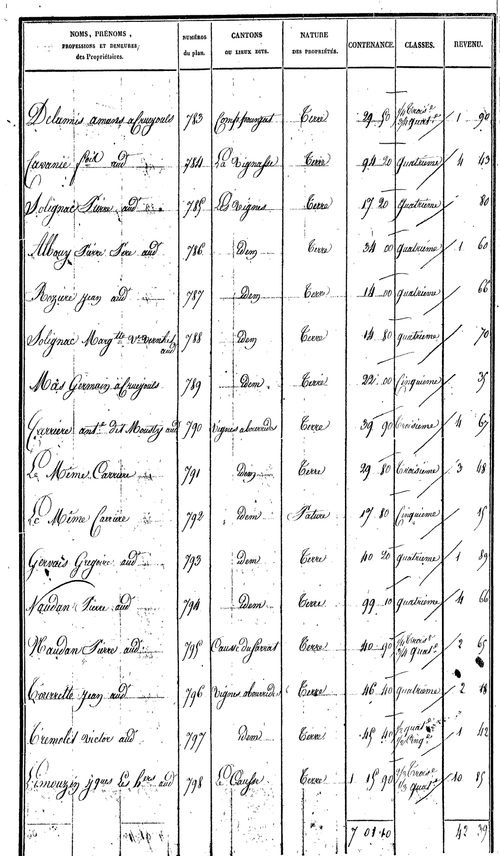 NOMS, PRÉNOMS, PROFESSIONS ET DEMEURES, des Propriétaires. | NUMÉROS du plan. | CANTONS OU LIEUX DITS. | NATURE DES PROPRIÉTÉS. | CONTENANCE. | CLASSES. | REVENU.
Delannis amans a Cruejouls 783 Terre 29 50 1/2 Trois.e 1/2 quat.e 1 90
Cavanié aud 784 La Vignasse Terre 94 20 quatrieme 4 43
Solignac Pierre aud 785 Les Vignes Terre 17 20 quatrieme 80
Albouy Pierre Pere aud 786 idem Terre 34 00 quatrieme 1 60
Anzure jean aud 787 idem Terre 14 00 quatrieme 66
Solignac Marg.tte V.e aud 788 idem Terre 14 80 quatrieme 70
Màs Germain a Cruejouls 789 idem Terre 22 00 Cinquieme 35
Carriere ant.e dit Mousty aud 790 Vignes abourrides Terre 39 90 troisieme 4 67
Le Même Carriere 791 idem Terre 29 80 troisieme 3 48
Le Même Carriere 792 idem Pature 17 80 Cinquieme 15
Gervais Gregoire aud 793 idem Terre 40 20 quatrieme 1 89
Naudan Pierre aud 794 idem Terre 99 10 quatrieme 4 66
Naudan Pierre aud 795 Causse du Sarrat Terre 40 90 2 65
Tourrette jean aud 796 Vignes abourrides Terre 46 40 quatrieme 2 18
Tremolet victor aud 797 idem Terre 45 40 1/2 quat.e 1/2 cinq.e 1 42
Limouzin jques Les h.ers aud 798 Le Causse Terre 1 15 90 10 85
7 01 10 42 39